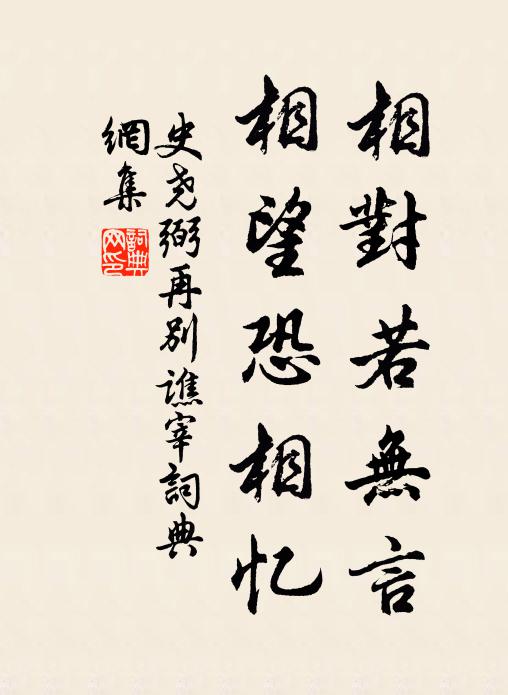 相對若無言
相望恐相忆
史尧弼再别譙宰詞典
網集
詞典网印